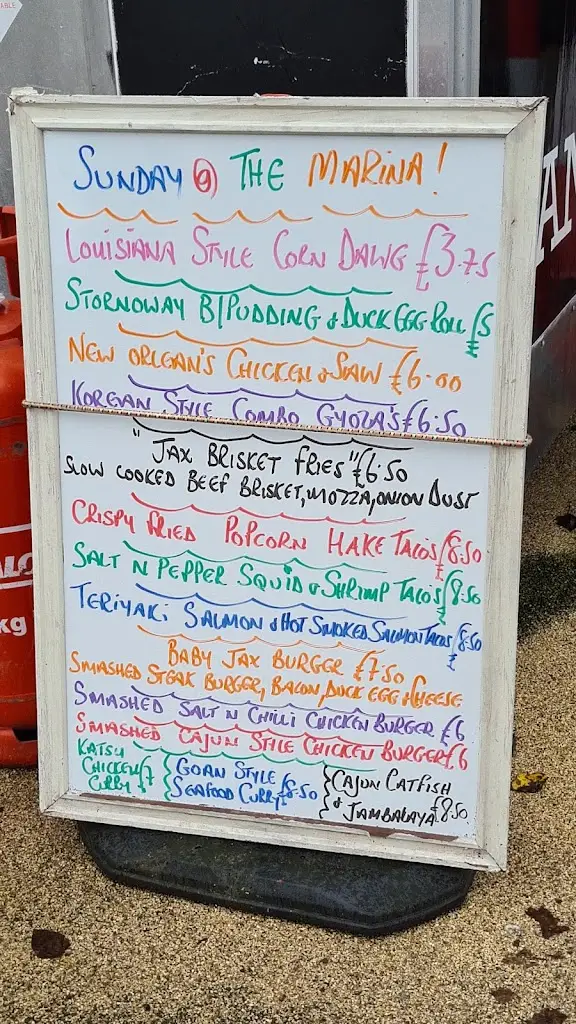 ABLE
SUNDAY @ THE MARINA!
LOUISIANA STYLE CORN DAWG £3.75
STORNOWAY B/PUDDING & DUCK EGG ROLL £5
NEW ORLEAN'S CHICKEN & SLAW £6.00
KOREAN STYLE COMBO GYOZA'S £6.50
"JAX BRISKET FRIES" £6.50
SLOW COOKED BEEF BRISKET, MOZZA, ONION DUST
CRISPY FRIED POPCORN HAKE TACO'S £8.50
SALT N PEPPER SQUID & SHRIMP TACO'S £8.50
TERIYAKI SALMON & HOT SMOKED SALMON TACOS £8.50
BABY JAX BURGER £7.50
SMASHED STEAK BURGER, BACON, DUCK EGG & CHEESE
SMASHED SALT N CHILLI CHICKEN BURGER £6
SMASHED CAJUN STYLE CHICKEN BURGER £6
KATSU
CHICKEN £7
CURRY
GOAN STYLE
SEAFOOD CURRY £8.50
CAJUN CATFISH
& JAMBALAYA £8.50
AN
kg